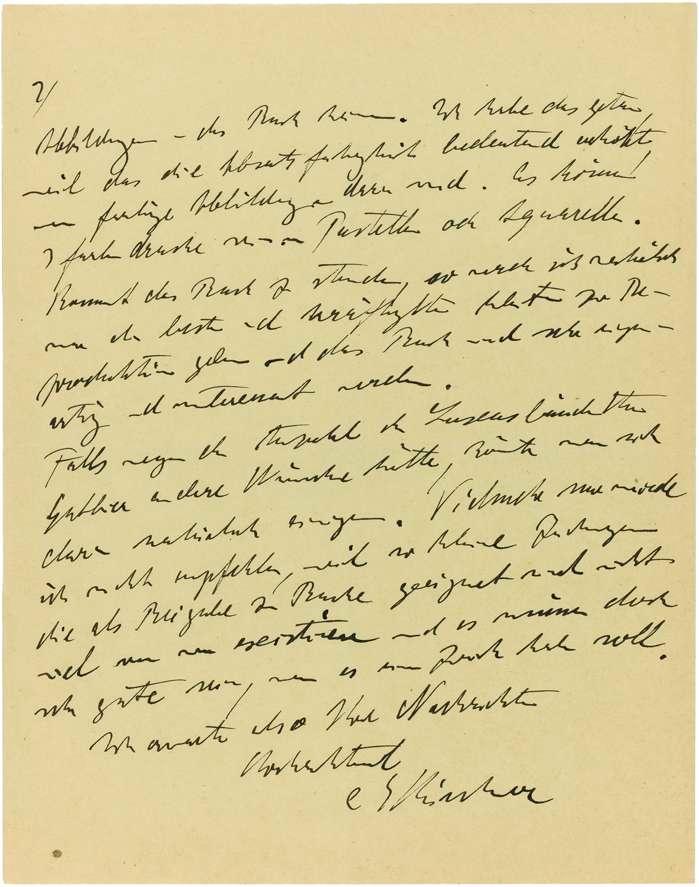 2/
Abbildungen in das Buch kämen. Ich habe das getan,
weil das die Absatzfähigkeit bedeutend erhöht
wenn farbige Abbildungen darin sind. Es können
3 farbendrucke sein von Pastellen oder Aquarellen.
Kommt das Buch zu stande, so werde ich natürlich
nur die besten und Arbeiten zur Re-
produktion geben und das Buch wird sehr eigen-
artig und interessant werden.
Falls wegen der der Luxusbändchen
Gubler andere Wünsche hätte, könnte man sich
darin natürlich einigen. Vielmehr nur würde
ich nicht empfehlen, weil so kleine Zeichnungen
die als Beigabe zum Buche geeignet sind nicht
viel von mir existieren und es müssen doch
sehr gute sein, wenn es einen Zweck haben soll.
Ich erwarte also Ihre Nachrichten
Hochachtend
E L Kirchner